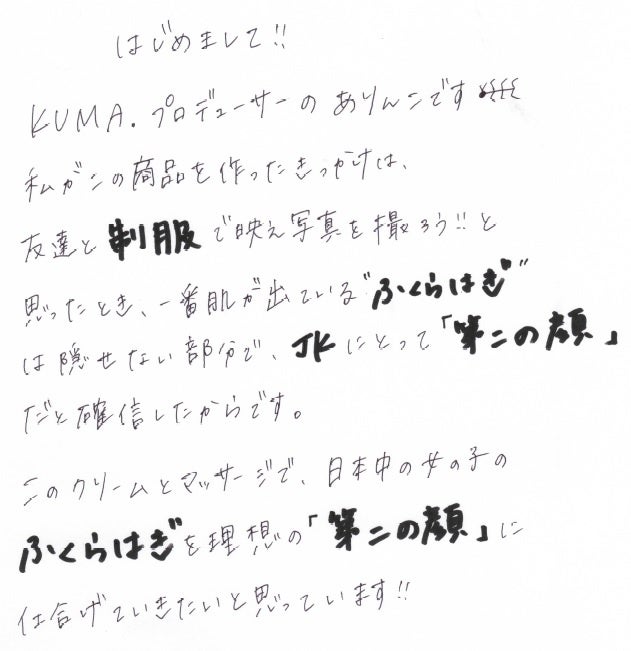 はじめまして!!
KUMA.プロデューサーのありんこです
私がこの商品を作ったきっかけは、
友達と制服で映え写真を撮ろう!!と
思ったとき、一番肌が出ている"ふくらはぎ"
は隠せない部分で、JKにとって「第二の顔」
だと確信したからです。
このクリームとマッサージで、日本中の女の子の
ふくらはぎを理想の「第二の顔」に
仕上げていきたいと思っています!!